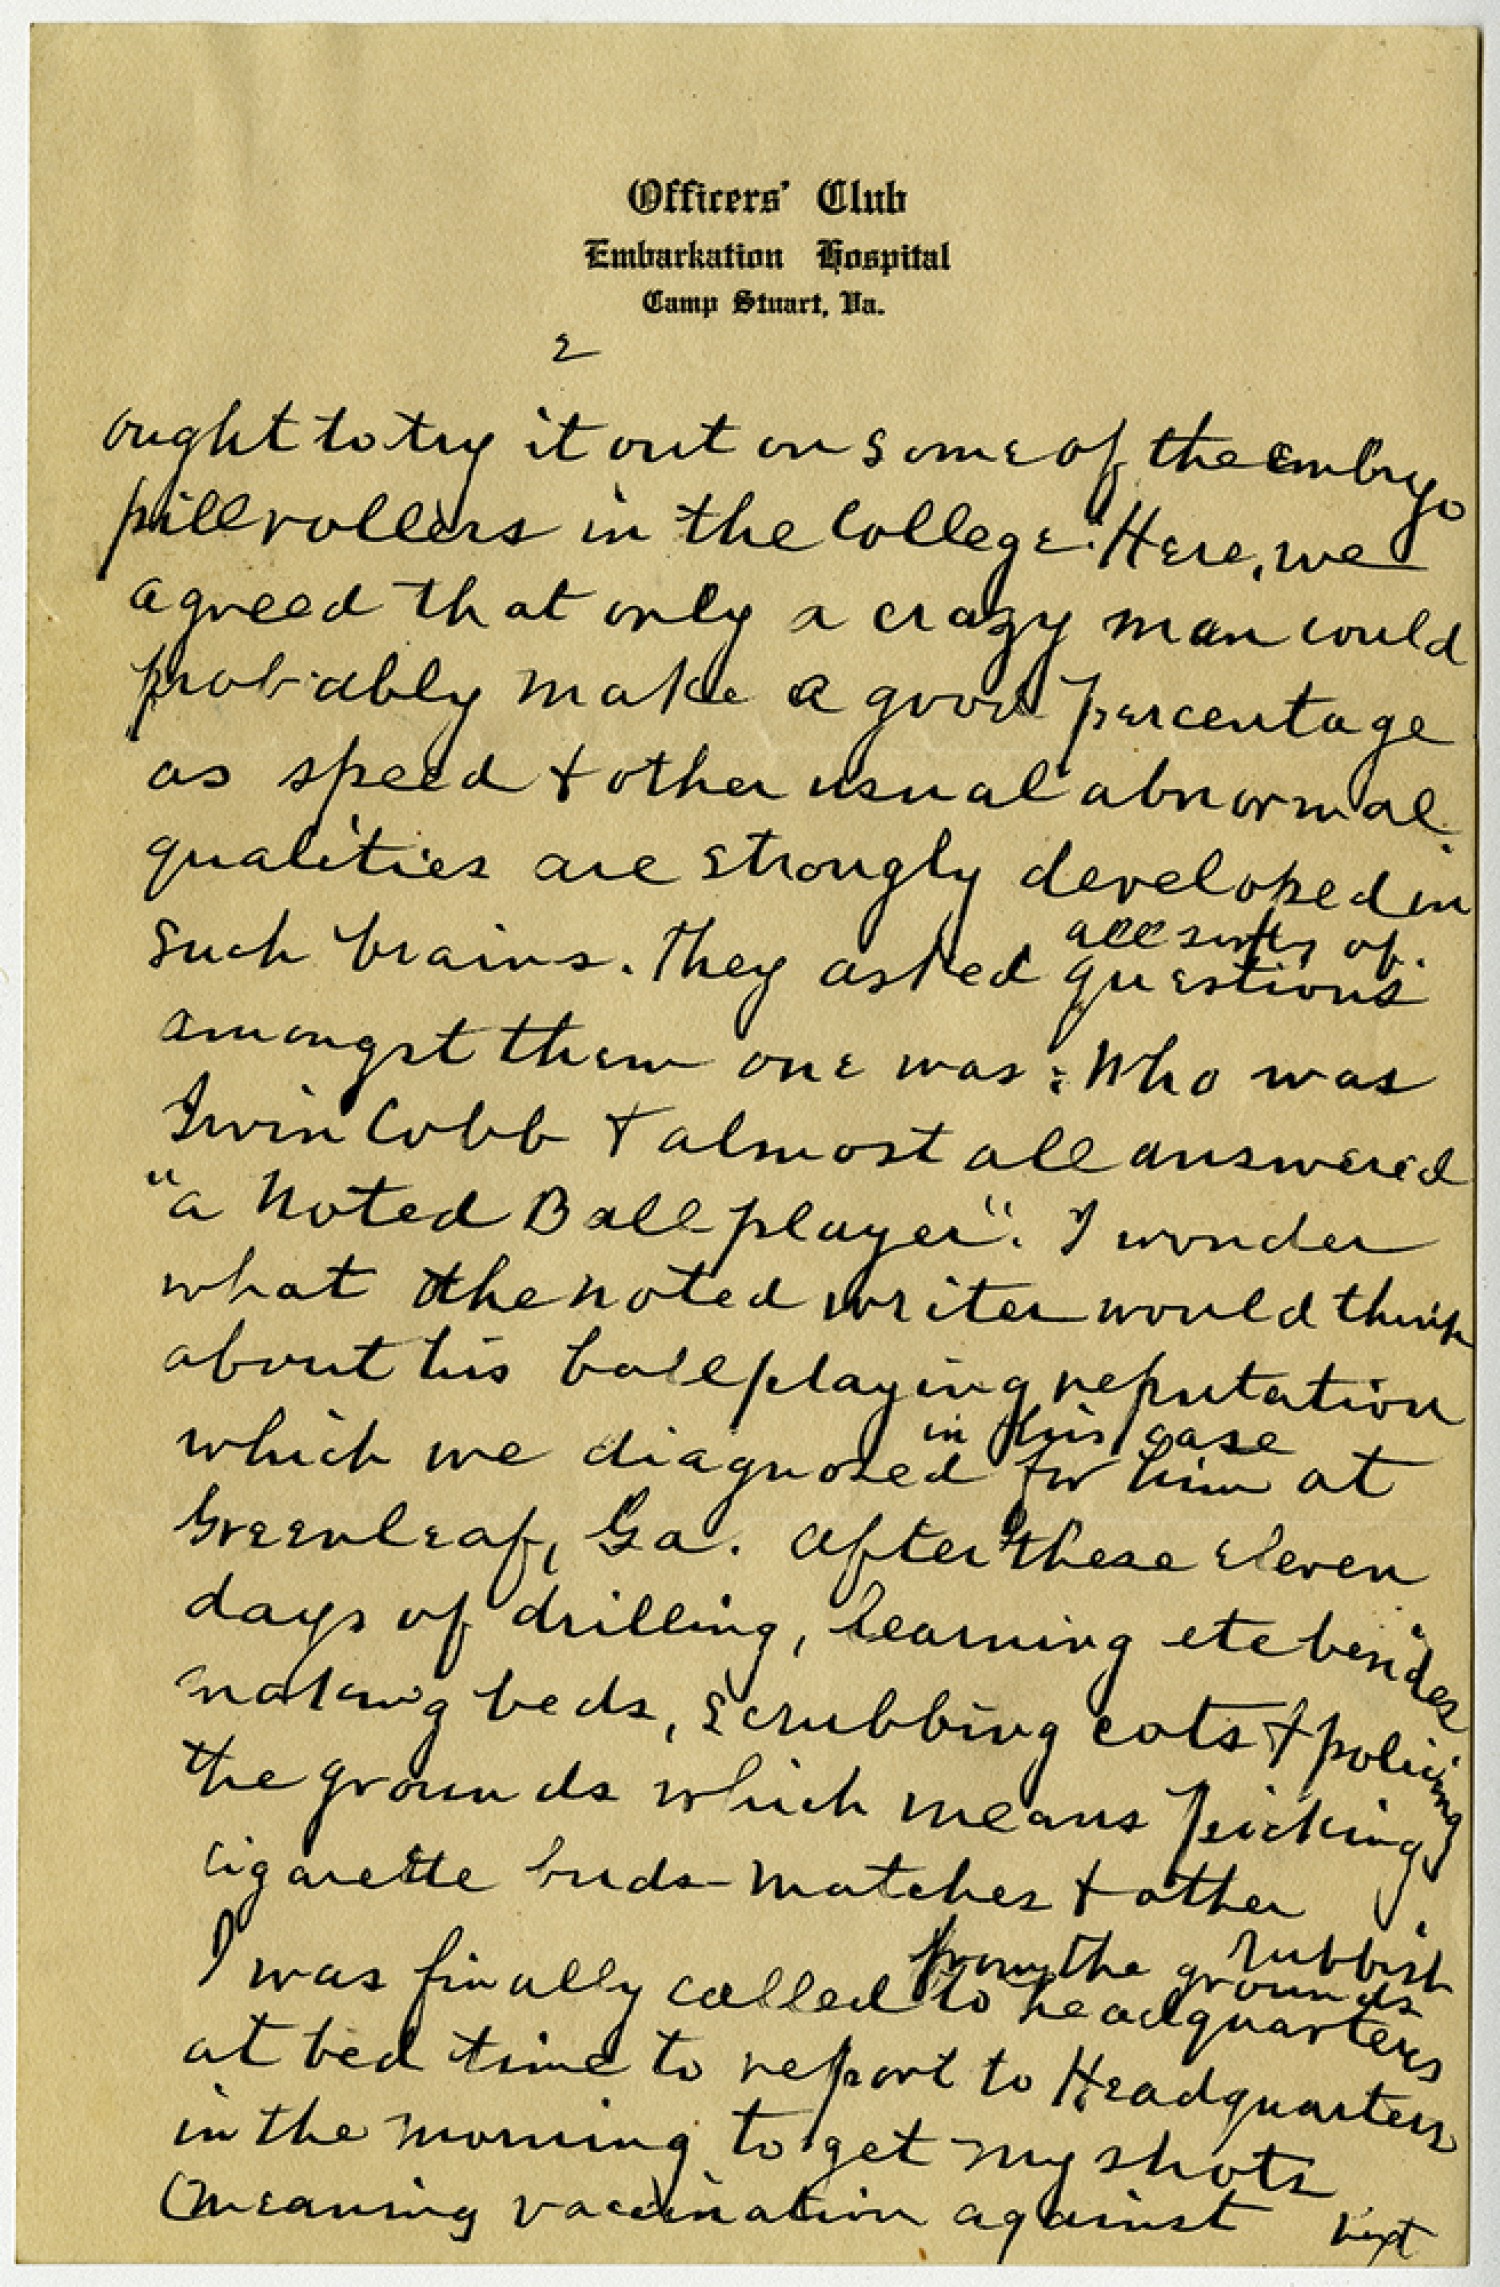 Officers' Club
Embarkation Hospital
Camp Stuart, Va.
2
ought to try it out on some of the embryo
pill rollers in the College. Here, we
agreed that only a crazy man could
probably make a good percentage
as speed & other usual abnormal
qualities are strongly developed in
such brains. They asked all sorts of questions
amongst them one was: Who was
Irvin Cobb & almost all answered
"a noted Ball player". I wonder
what the noted writer would think
about his ball playing reputation
which we diagnosed in this case for him at
Greenleaf, Ga. After these eleven
days of drilling, learning etc besides
making beds, scrubbing cots & policing
the grounds which means picking
cigarette buds - matches & other
rubbish from the grounds
I was finally called to headquarters
at bed time to report to Headquarters
in the morning to get my shots
(meaning vaccination against
next